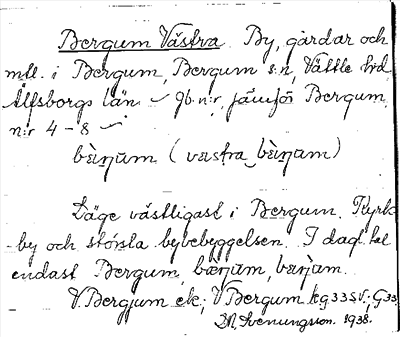 Bergum Västra. By, gårdar och
mtl. i Bergum, Bergum sn, Vättle hd
Älfsborgs län gb. n:r, jämför Bergum
n:r 4 - 8
bæ̀rŋum (væstra bæ̀rŋum)
Läge västligast i Bergum. Kyrk-
by och största bybebyggelsen. I dagl. tal
endast Bergum, bærŋum, bærŋum.
V. Bergjum ek; V Bergum kg 33 SV; G 33
M. Svenungsson. 1938.